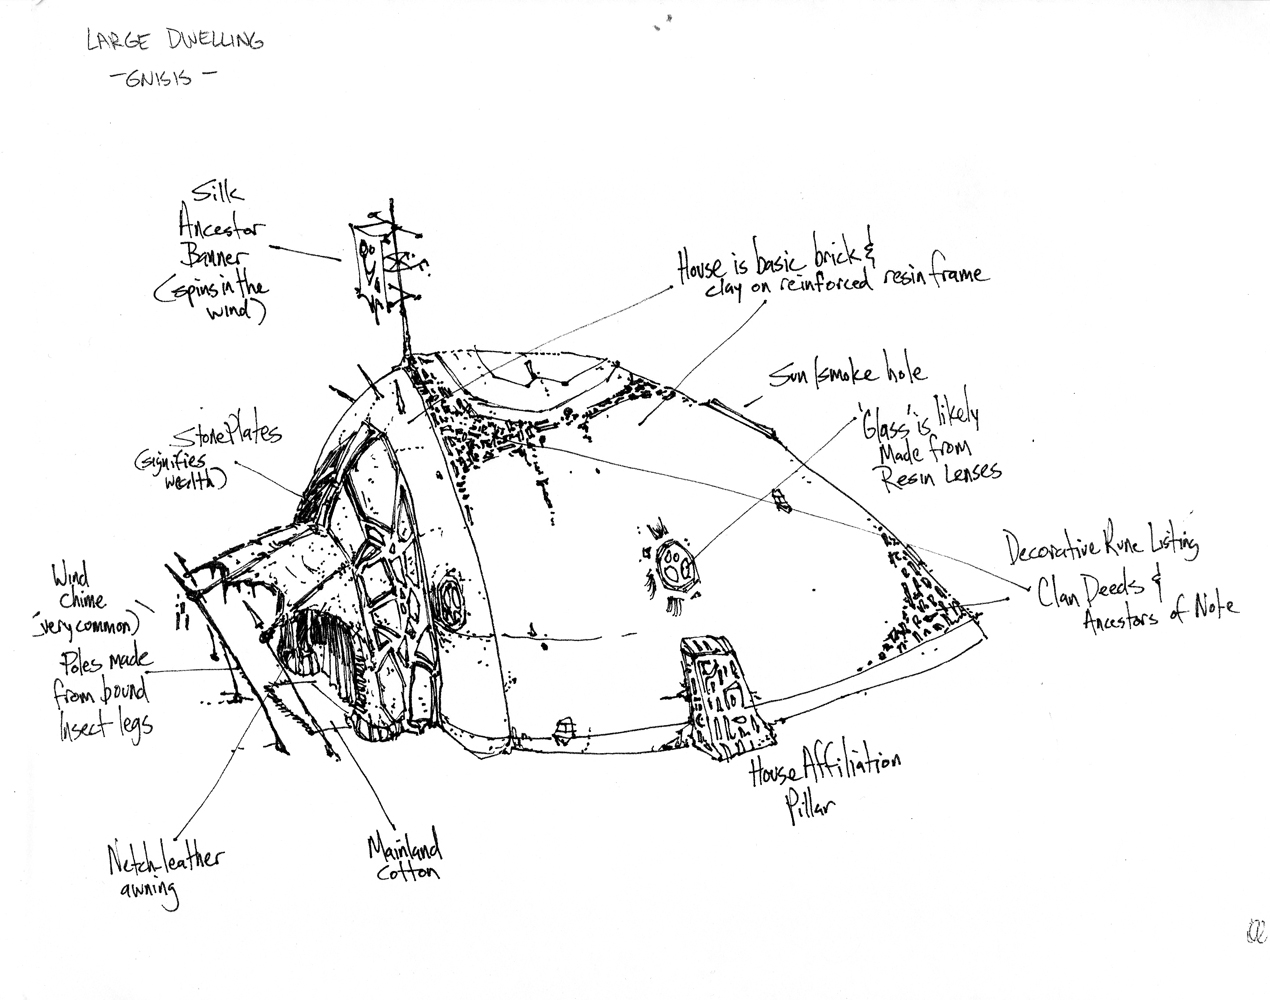 LARGE DWELLING
- GNISIS -
Silk
Ancestor
Banner
(spins in the
wind)
House is basic brick &
clay on reinforced resin frame
Sun/smoke hole
'Glass' is likely
Made from
Resin Lenses
Stone Plates
(signifies
wealth)
Decorative Rune Listing
Clan Deeds &
Ancestors of Note
Wind
Chime
(very common)
Poles made
from bound
Insect legs
House Affiliation
Pillar
Netch-leather
awning
Mainland
Cotton